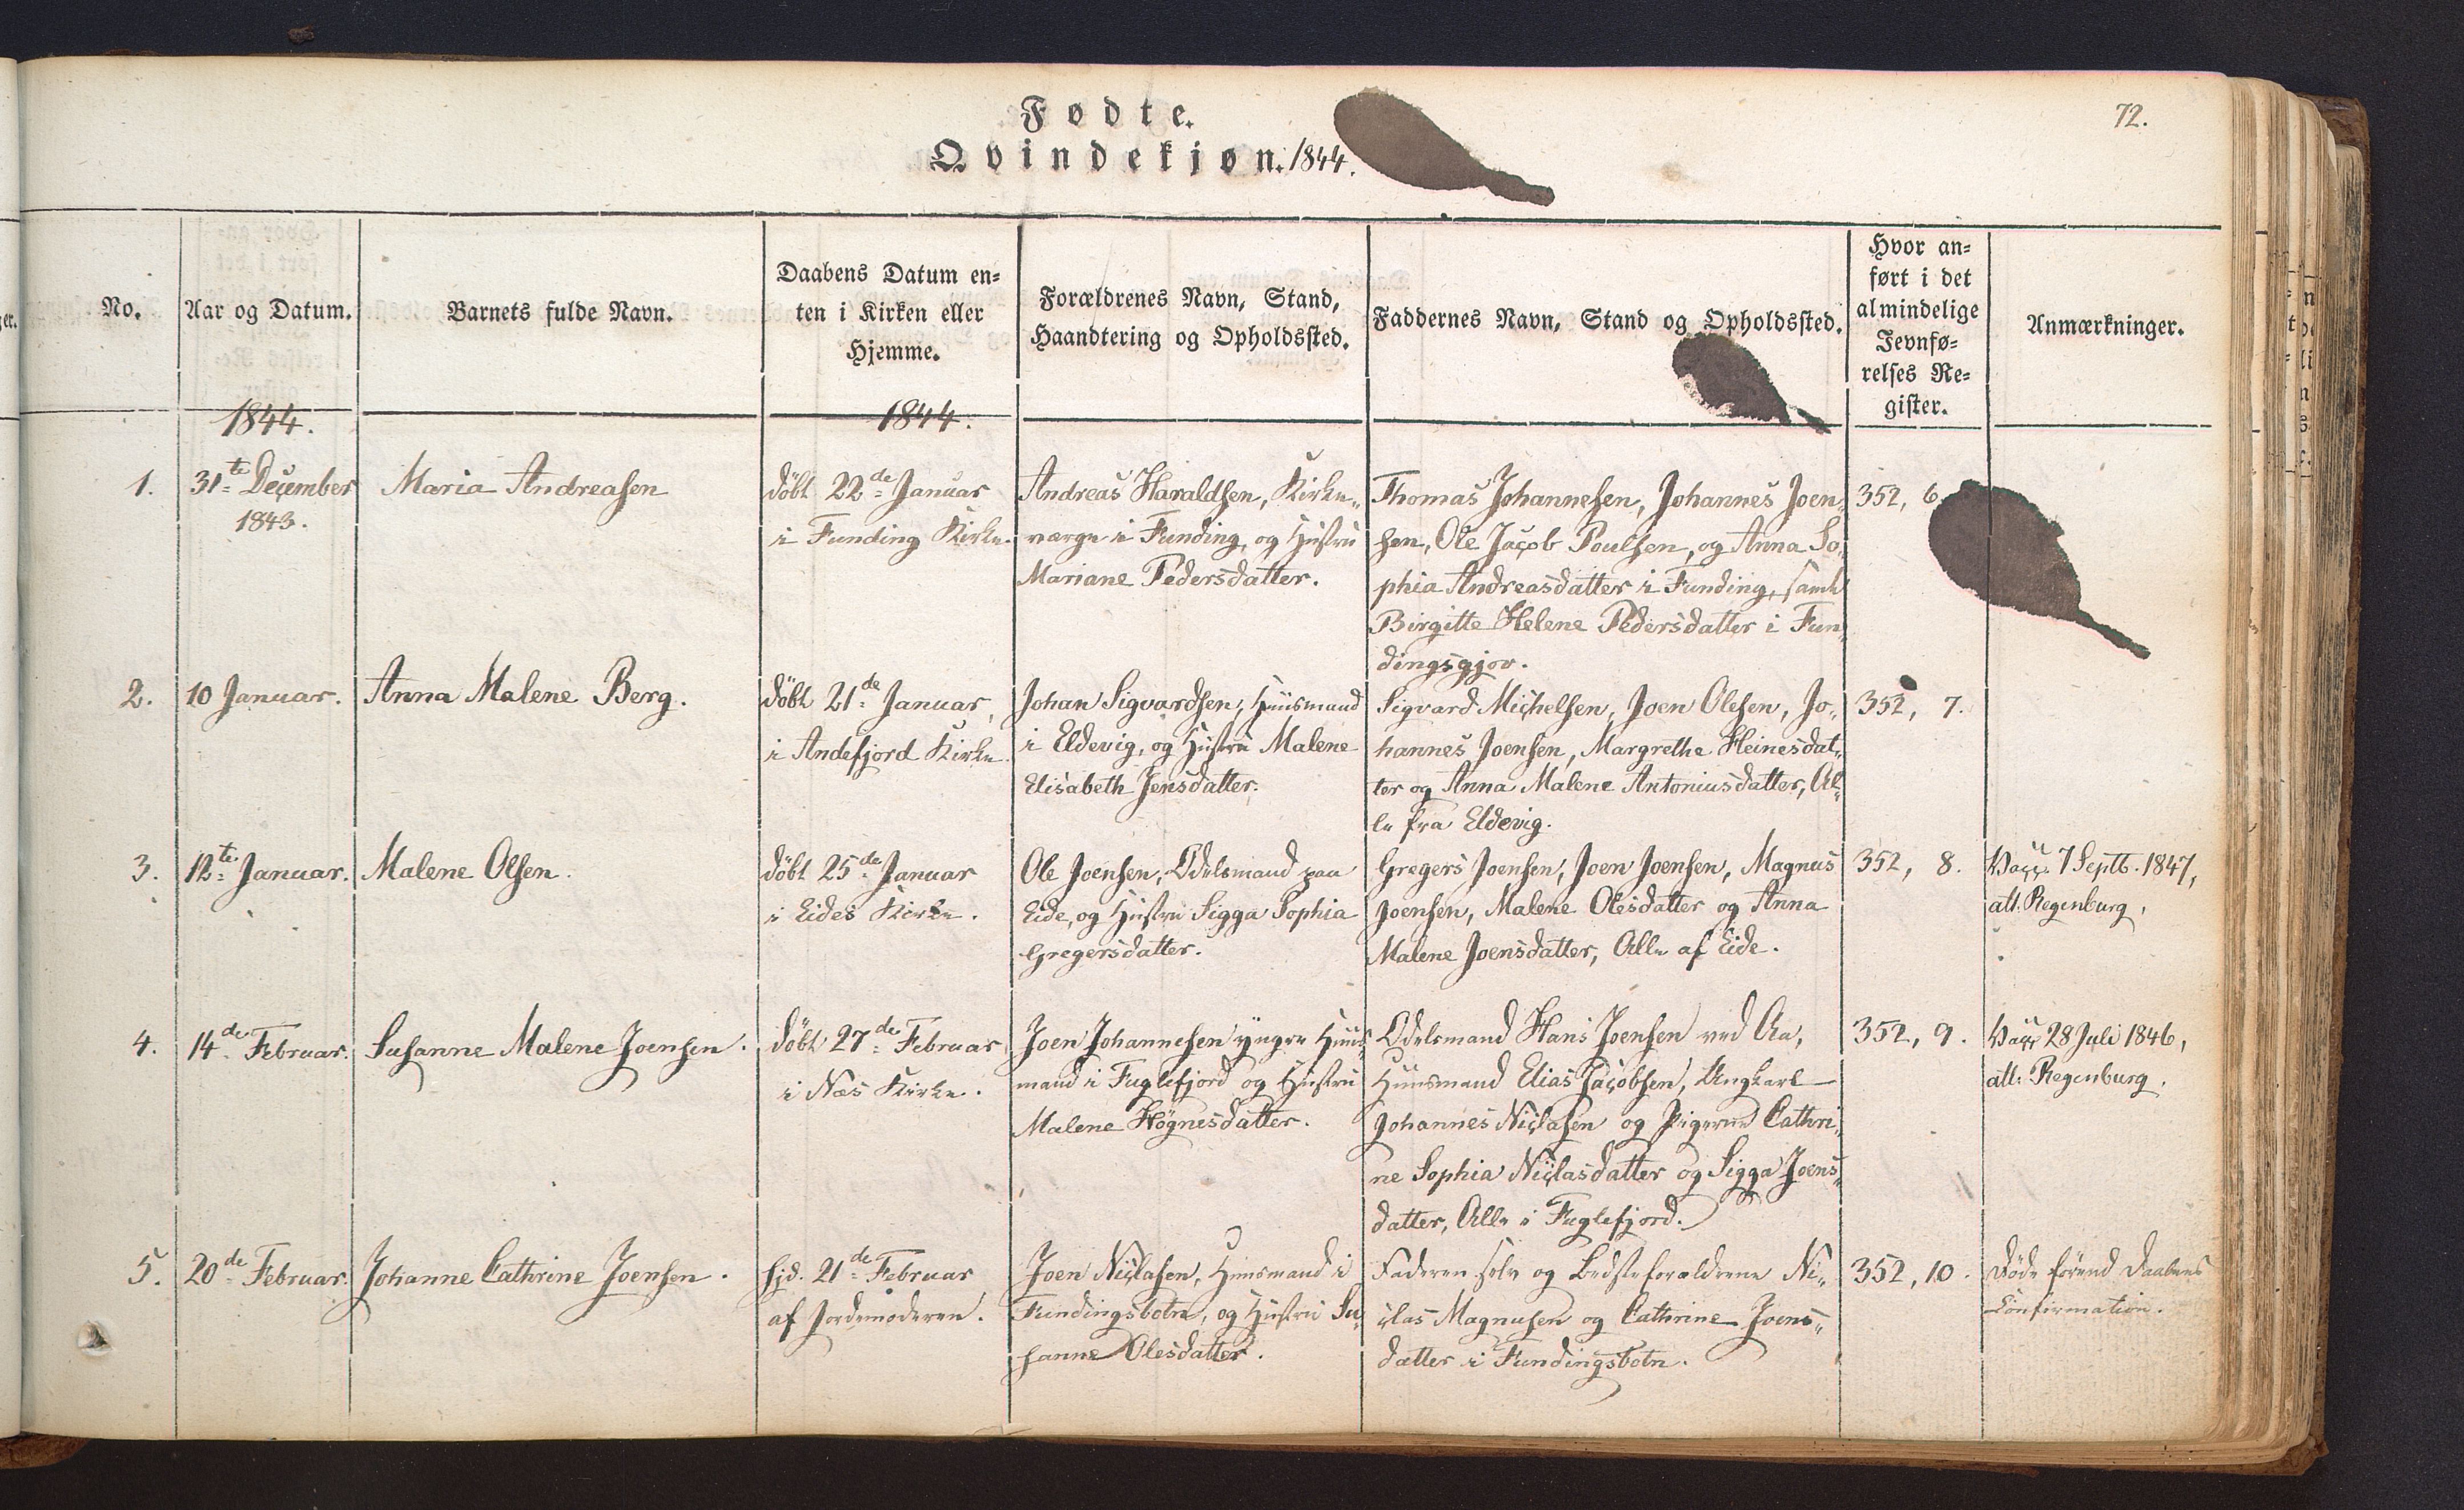 72.
Fødte.
Qvindekjøn. 1844.
No.
Aar og Datum.
Barnets fulde Navn.
Daabens Datum en-
ten i Kirken eller
Hjemme.
Forældrenes Navn, Stand,
Haandtering og Opholdssted.
Faddernes Navn, Stand og Opholdssted.
Hvor an-
ført i det
almindelige
Jevnfø-
relses Re-
gister.
Anmærkninger.
1844.
1844.
1.
31te December
1843.
Maria Andreasen
döbt 22de Januar
i Funding Kirke.
Andreas Haraldsen, Kirke-
værge i Funding, og Hustru
Mariane Pedersdatter.
Thomas Johannesen, Johannes Joen-
sen, Ole Jacob Poulsen, og Anna So-
phia Andreasdatter i Funding, samt
Birgitte Helene Pedersdatter i Fun-
dingsgjov.
352, 6
2.
10 Januar.
Anna Malene Berg.
döbt 21de Januar,
i Andefjord Kirke.
Johan Sigvardsen, Huusmand
i Eldevig, og Hustru Malene
Elisabeth Jensdatter.
Sigvard Michelsen, Joen Olesen, Jo-
hannes Joensen, Margrethe Heinesdat-
ter og Anna Malene Antoniusdatter, Al-
le fra Eldevig.
352, 7.
3.
12te Januar.
Malene Olsen.
döbt 25de Januar
i Eides Kirke.
Ole Joensen, Odelsmand paa
Eide, og Hustru Sigga Sophia
Gregersdatter.
Gregers Joensen, Joen Joensen, Magnus
Joensen, Malene Olesdatter og Anna
Malene Joensdatter, Alle af Eide.
352, 8.
Vacc. 7 Septb. 1847,
att. Regenburg.
4.
14de Februar.
Susanne Malene Joensen.
döbt 27de Februar
i Næs Kirke.
Joen Johannesen yngre Huus-
mand i Fuglefjord og Hustru
Malene Högnesdatter.
Odelsmand Hans Joensen ved Aa,
Huusmand Elias Jacobsen, Ungkarl
Johannes Niclasen og Pigerne Cathri-
ne Sophia Niclasdatter og Sigga Joens-
datter, Alle i Fuglefjord.
352, 9.
Vacc. 28 Juli 1846,
att. Regenburg.
5.
20de Februar.
Johanne Cathrine Joensen.
hjd. 21de Februar
af Jordemoderen.
Joen Niclasen, Huusmand i
Fundingsbotn, og Hustru Su-
sanne Olesdatter.
Faderen selv og Bedsteforældrene Ni-
clas Magnusen og Cathrine Joens-
datter i Fundingsbotn.
352, 10.
Döde förend Daabens
Confirmation.